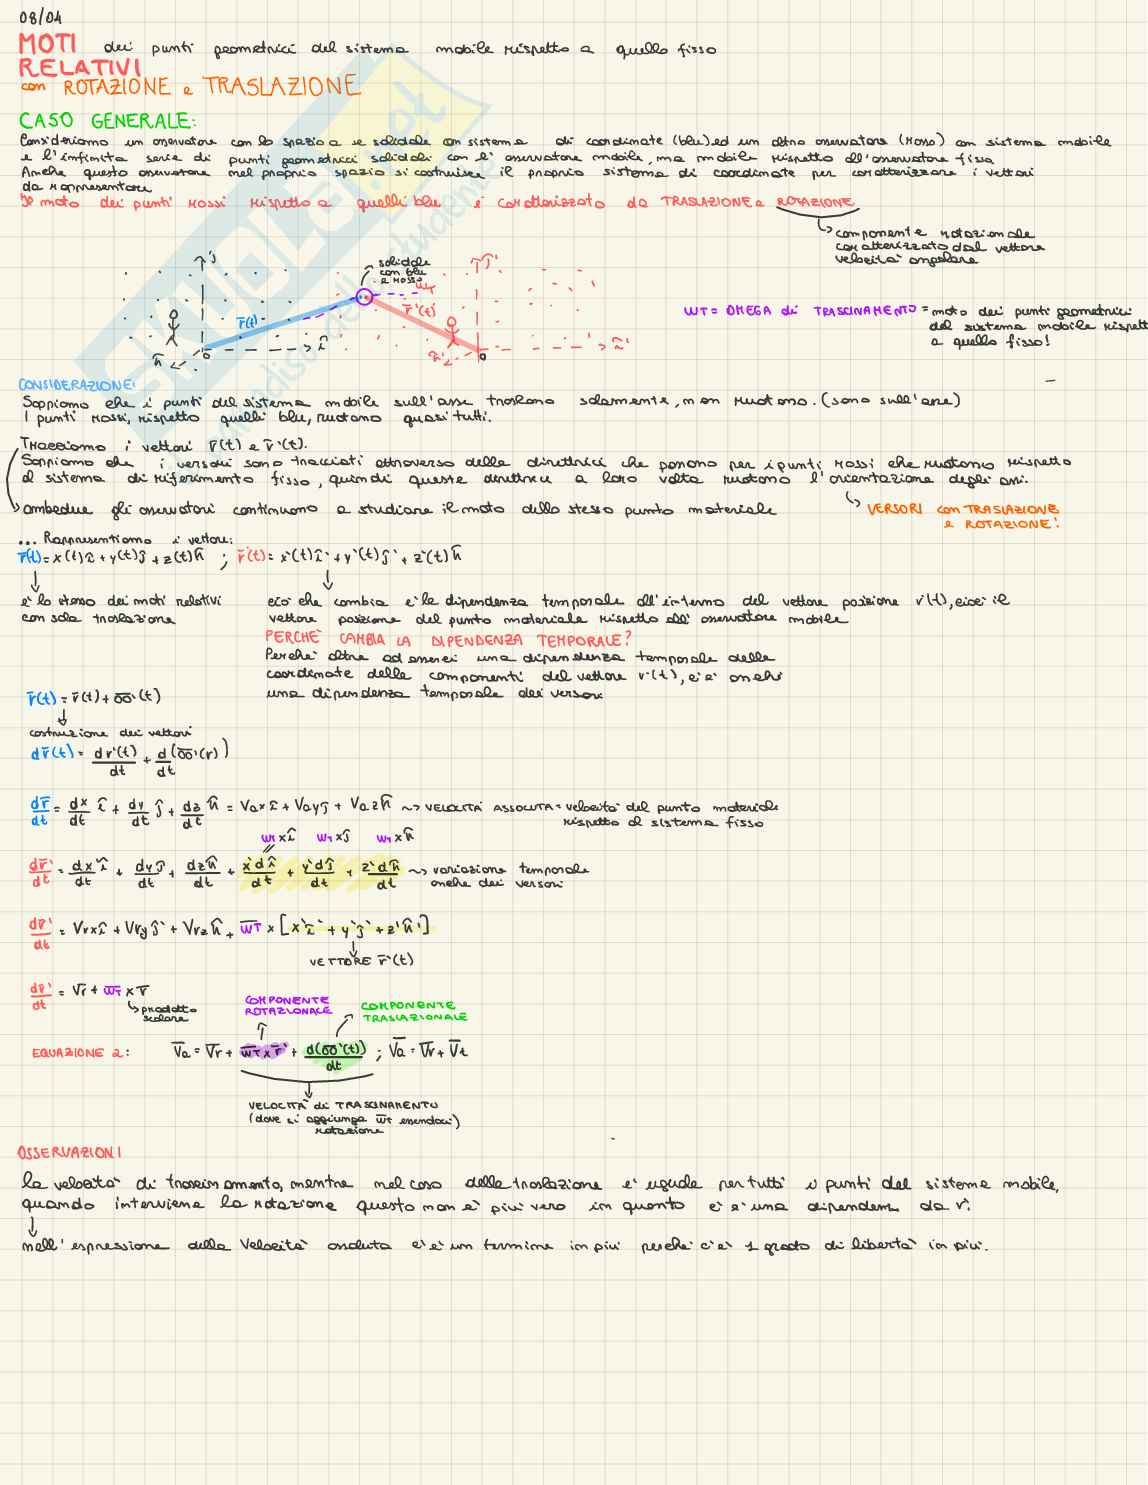 08/04
MOTI dei punti geometrici del sistema mobile rispetto a quello fisso
RELATIVI
con ROTAZIONE e TRASLAZIONE
CASO GENERALE:
Consideriamo un osservatore con lo spazio a se solidale con sistema di coordinate (blu) ed un altro osservatore (rosso) con sistema mobile
e l'infinita serie di punti geometrici solidali con l'osservatore mobile, ma mobile rispetto all'osservatore fisso
Anche questo osservatore nel proprio spazio si costruisce il proprio sistema di coordinate per caratterizzare i vettori
da rappresentare
Il moto dei punti rossi rispetto a quelli blu è caratterizzato da TRASLAZIONE e ROTAZIONE
componente rotazionale
caratterizzato dal vettore
velocità angolare
solidale
con blu
e rosso
ĵ
ĵ'
ωT
r̄(t)
r̄'(t)
î
î'
k̂
k̂'
o
o
ωT = OMEGA di TRASCINAMENTO = moto dei punti geometrici
del sistema mobile rispett
a quello fisso!
CONSIDERAZIONE:
Sappiamo che i punti del sistema mobile sull'asse traslano solamente, non ruotano. (sono sull'asse)
I punti rossi, rispetto quelli blu, ruotano quasi tutti.
Tracciamo i vettori r̄(t) e r̄'(t).
Sappiamo che i versori sono tracciati attraverso delle direttrici che passano per i punti rossi che ruotano rispetto
al sistema di riferimento fisso, quindi queste direttrici a loro volta ruotano l'orientazione degli assi.
ambedue gli osservatori continuano a studiare il moto dello stesso punto materiale
VERSORI con TRASLAZIONE
e ROTAZIONE!
... Rappresentiamo i vettori:
r̄(t) = x(t)î + y(t)ĵ + z(t)k̂ ; r̄'(t) = x'(t)î' + y'(t)ĵ' + z'(t)k̂
è lo stesso dei moti relativi
con sola traslazione
ciò che cambia è la dipendenza temporale all'interno del vettore posizione r'(t), cioè il
vettore posizione del punto materiale rispetto all'osservatore mobile
PERCHÈ CAMBIA LA DIPENDENZA TEMPORALE?
Perchè oltre ad esserci una dipendenza temporale delle
coordinate delle componenti del vettore r'(t), c'è anche
una dipendenza temporale dei versori
r̄(t) = r̄(t) + oo'(t)
costruzione dei vettori
dr̄(t) = dr'(t)/dt + d/dt (oo'(r))
dr̄/dt = dx/dt î + dy/dt ĵ + dz/dt k̂ = Vax î + Vay ĵ + Vaz k̂ ~> VELOCITÀ ASSOLUTA = velocità del punto materiale
rispetto al sistema fisso
ωT × î ωT × ĵ ωT × k̂
dr̄'/dt = dx'î/dt + dyĵ/dt + dzk̂/dt + x'dî/dt + y'dĵ/dt + z'dk̂/dt ~> variazione temporale
anche dei versori
dr'/dt = Vrx î + Vry ĵ' + Vrz k̂ + ω̄T × [x'î' + y'ĵ' + z'k̂']
VETTORE r̄'(t)
dr'/dt = V̄r + ω̄T × r̄
prodotto
scalare
COMPONENTE
ROTAZIONALE
COMPONENTE
TRASLAZIONALE
EQUAZIONE 2: V̄a = V̄r + ω̄T × r̄' + d(oo'(t))/dt ; V̄a = V̄r + V̄t
VELOCITA' di TRASCINAMENTO
(dove si aggiunge ω̄T essendoci)
rotazione
OSSERVAZIONI
la velocità di trascinamento, mentre nel caso della traslazione è uguale per tutti i punti del sistema mobile,
quando interviene la rotazione questo non è più vero in quanto c'è una dipenden. da r'.
nell'espressione della Velocità assoluta c'è un termine in più perchè c'è 1 grado di libertà in più.